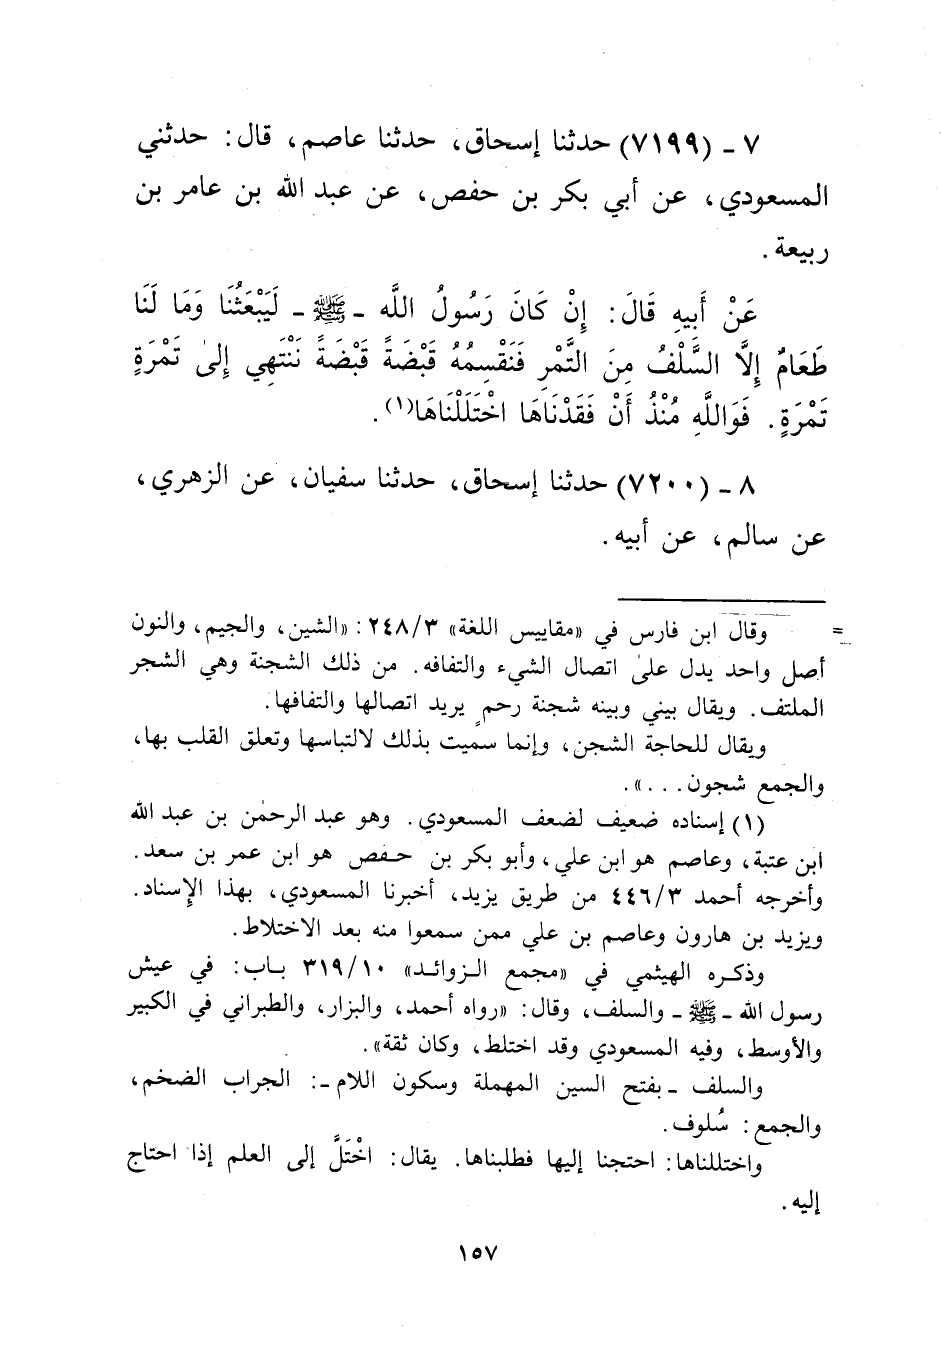 ٧ ـ (٧١٩٩) حدثنا إسحاق، حدثنا عاصم، قال: حدثني
المسعودي، عن أبي بكر بن حفص، عن عبد الله بن عامر بن
ربيعة.
عَنْ أَبِيهِ قَالَ: إِنْ كَانَ رَسُولُ اللَّه ـ ﷺ ـ لَيَبْعَثُنَا وَمَا لَنَا
طَعَامٌ إِلَّا السَّلْفُ مِنَ التَّمْرِ فَنَقْسِمُهُ قَبْضَةً قَبْضَةً نَنْتَهِي إِلىٰ تَمْرَةٍ
تَمْرَةٍ. فَوَاللَّهِ مُنْذُ أَنْ فَقَدْنَاهَا اخْتَلَلْنَاهَا(١).
٨ ـ (٧٢٠٠) حدثنا إسحاق، حدثنا سفيان، عن الزهري،
عن سالم، عن أبيه.
= وقال ابن فارس في «مقاييس اللغة» ٢٤٨/٣: «الشين، والجيم، والنون
أصل واحد يدل علىٰ اتصال الشيء والتفافه. من ذلك الشجنة وهي الشجر
الملتف. ويقال بيني وبينه شجنة رحمٍ يريد اتصالها والتفافها.
ويقال للحاجة الشجن، وإنما سميت بذلك لالتباسها وتعلق القلب بها،
والجمع شجون...».
(١) إسناده ضعيف لضعف المسعودي. وهو عبد الرحمٰن بن عبد الله
ابن عتبة، وعاصم هو ابن علي، وأبو بكر بن حفص هو ابن عمر بن سعد.
وأخرجه أحمد ٤٤٦/٣ من طريق يزيد، أخبرنا المسعودي، بهذا الإسناد.
ويزيد بن هارون وعاصم بن علي ممن سمعوا منه بعد الاختلاط.
وذكره الهيثمي في «مجمع الزوائد» ٣١٩/١٠ باب: في عيش
رسول الله ـ ﷺ ـ والسلف، وقال: «رواه أحمد، والبزار، والطبراني في الكبير
والأوسط، وفيه المسعودي وقد اختلط، وكان ثقة».
والسلف ـ بفتح السين المهملة وسكون اللام ـ: الجراب الضخم،
والجمع: سُلوف.
واختللناها: احتجنا إليها فطلبناها. يقال: اخْتَلَّ إلى العلم إذا احتاج
إليه.
١٥٧